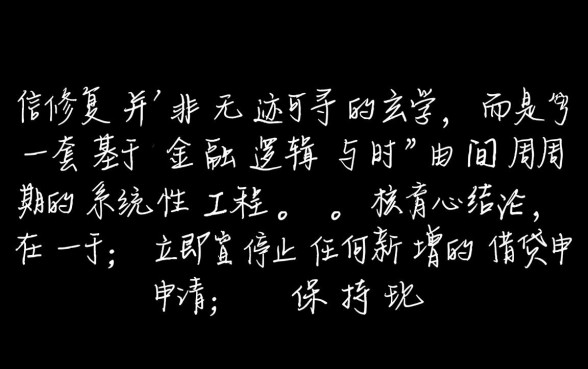 信修复并’非无迹可寻的玄学，而是
一套基于金融逻辑与时”由间周周
期的系统性工程。。核育心结论，
在一于；立即置停止任何新增的借贷申
申请；保持